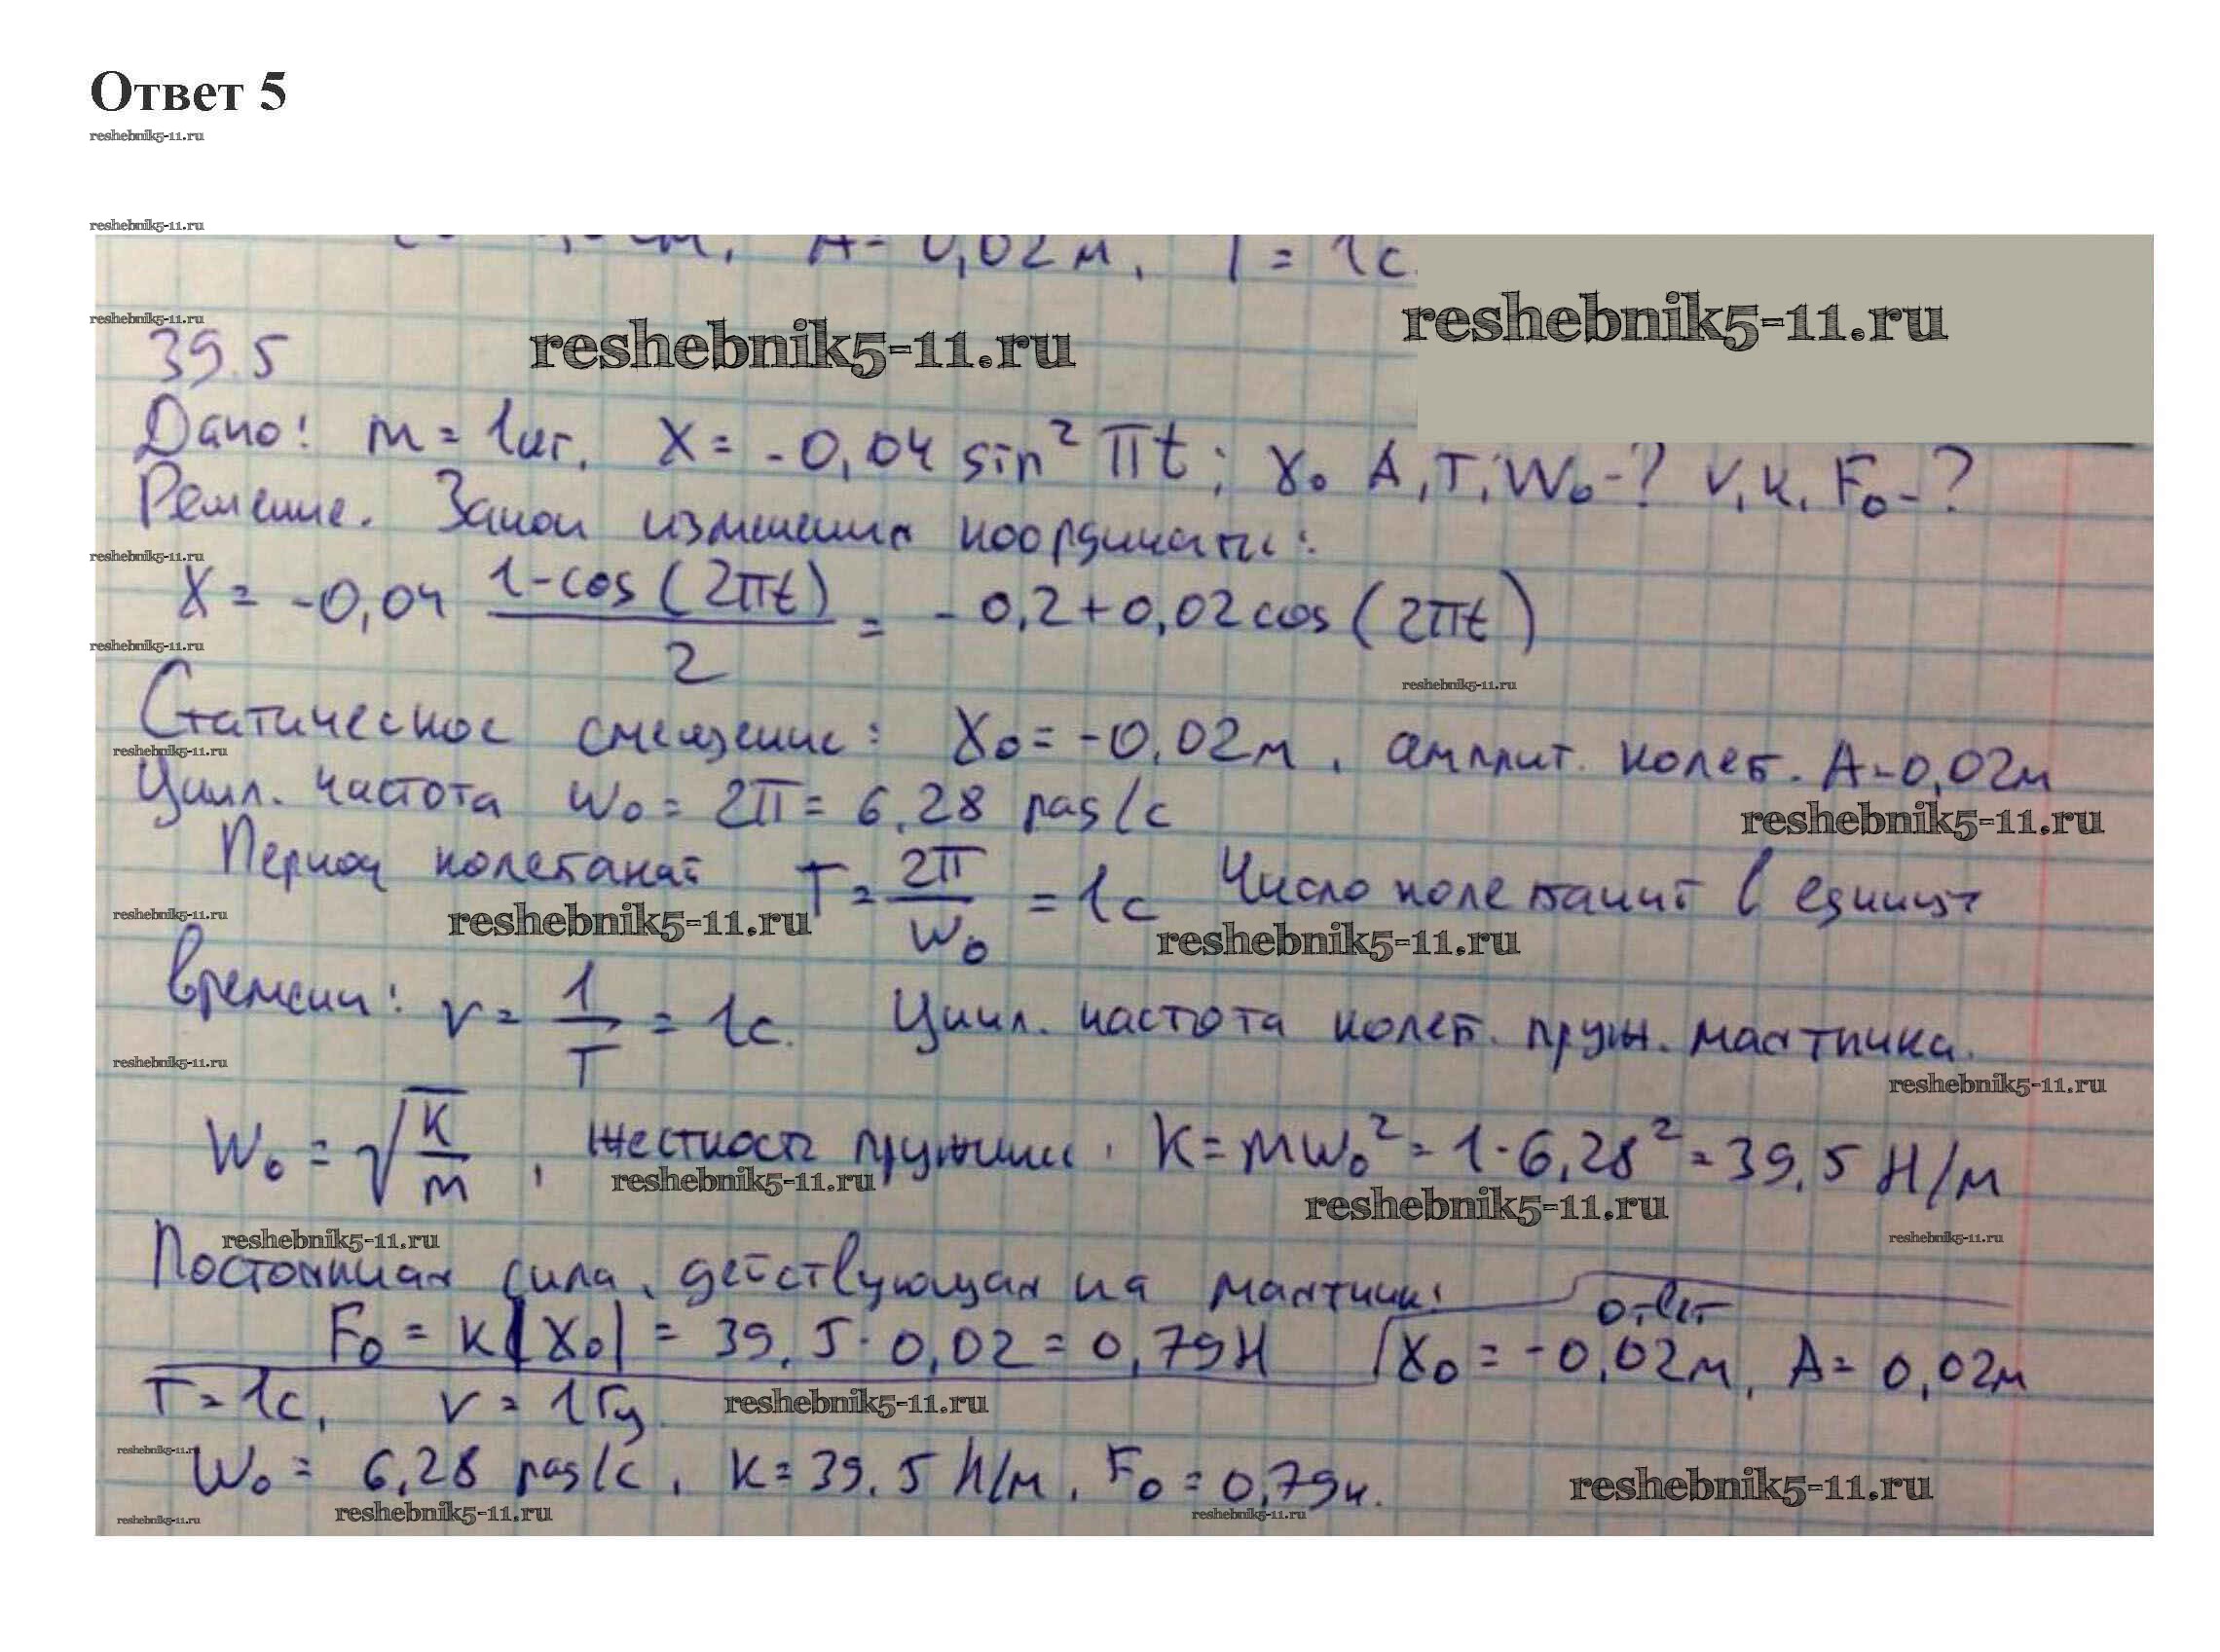 Ответ 5
reshebnik5-11.ru
reshebnik5-11.ru
А= 0,02м, T = 1с.
reshebnik5-11.ru
reshebnik5-11.ru
reshebnik5-11.ru
39.5
Дано: m = 1кг, X = -0,04 sin² πt; X₀ A, T, W₀-? ν, к, F₀-?
Решение. Закон изменения координаты:
reshebnik5-11.ru
X = -0,04 (1-cos(2πt))/2 = -0,2+0,02cos(2πt)
reshebnik5-11.ru
reshebnik5-11.ru
Статическое смещение: X₀ = -0,02м, амплит. колеб. A=0,02м
reshebnik5-11.ru
Цикл. частота W₀ = 2π = 6,28 рад/с
reshebnik5-11.ru
Период колебаний T = 2π/W₀ = 1с Число колебаний в единицу
reshebnik5-11.ru
reshebnik5-11.ru
reshebnik5-11.ru
времени: ν = 1/T = 1с. Цикл. частота колеб. пруж. маятника.
reshebnik5-11.ru
reshebnik5-11.ru
W₀ = √(к/m), жесткость пружины, K = mW₀² = 1·6,28² = 39,5 Н/м
reshebnik5-11.ru
reshebnik5-11.ru
reshebnik5-11.ru
reshebnik5-11.ru
Постоянная сила, действующая на маятник:
ответ
F₀ = к|X₀| = 39,5·0,02 = 0,79Н X₀ = -0,02м, A = 0,02м
T = 1с, ν = 1Гц
reshebnik5-11.ru
reshebnik5-11.ru
W₀ = 6,28 рад/с, K = 39,5 Н/м, F₀ = 0,79н.
reshebnik5-11.ru
reshebnik5-11.ru
reshebnik5-11.ru
reshebnik5-11.ru